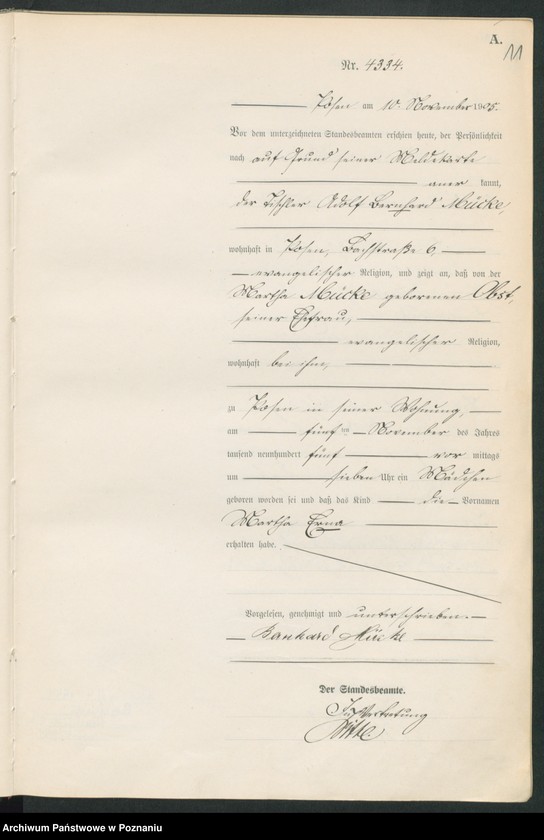 A.
11
Nr. 4334.
Posen am 10. November 1905.
Vor dem unterzeichneten Standesbeamten erschien heute, der Persönlichkeit
nach auf Grund seiner Meldekarte
aner kannt,
der Tischler Adolf Bernhard Mücke,
wohnhaft in Posen, Bachstraße 6,
evangelischer Religion, und zeigt an, daß von der
Martha Mücke geborenen Obst,
seiner Ehefrau,
evangelischer Religion,
wohnhaft bei ihm,
zu Posen in seiner Wohnung,
am fünften November des Jahres
tausend neunhundert fünf vor mittags
um sieben Uhr ein Mädchen
geboren worden sei und daß das Kind die Vornamen
Martha Erna
erhalten habe.
Vorgelesen, genehmigt und unterschrieben.
Bernhard Mücke
Der Standesbeamte.
In Vertretung
Archiwum Państwowe w Poznaniu